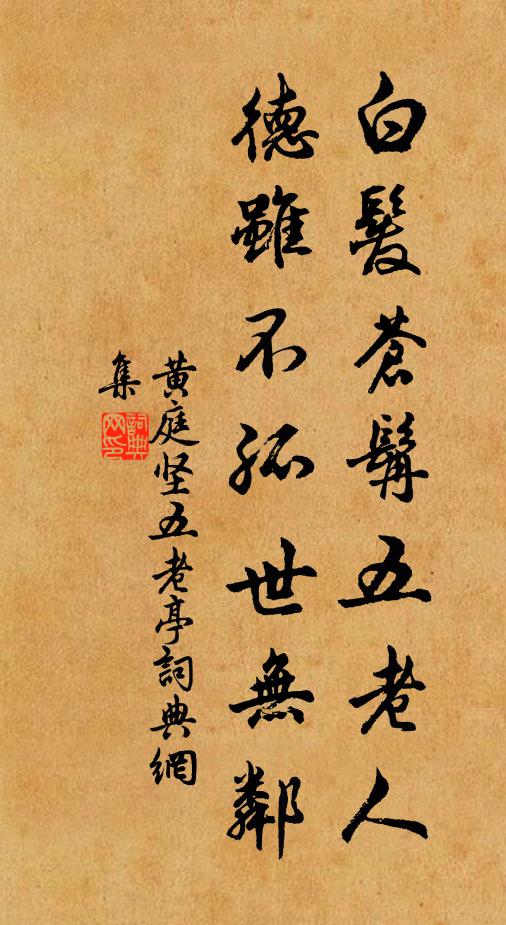 白髮蒼髯五老人
德雖不孤世無鄰
黄庭坚五老亭詞典網
集
詞典網印